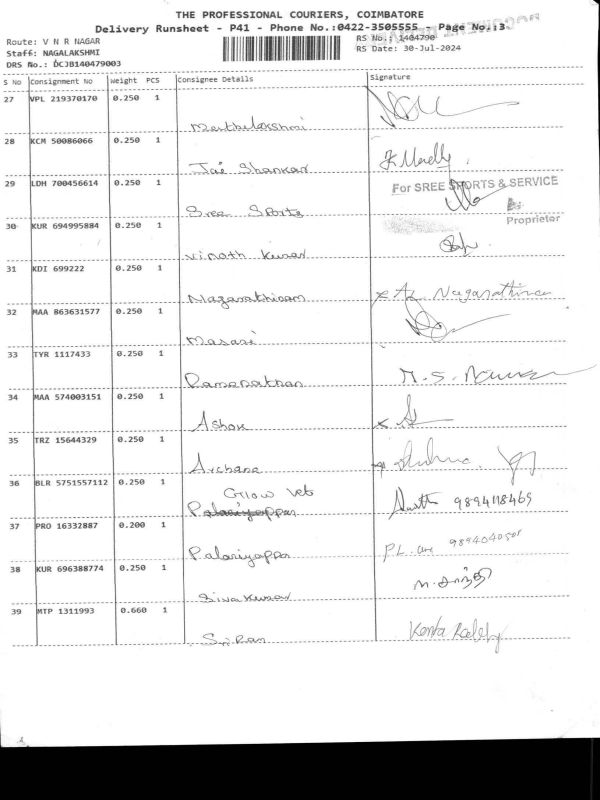 THE PROFESSIONAL COURIERS, COIMBATORE
Delivery Runsheet - P41 - Phone No.:0422-3505555 - Page No.:3
Route: V N R NAGAR
RS No.: 1404790
Staff: NAGALAKSHMI
RS Date: 30-Jul-2024
DRS No.: DCJB140479003
S No Consignment No Weight PCS Consignee Details Signature
27 VPL 219370170 0.250 1
28 KCM 50086066 0.250 1
Jai Shankar
29 LDH 700456614 0.250 1
For SREE SPORTS & SERVICE
Sree Sports
Proprietor
30 KUR 694995884 0.250 1
Vinoth Kumar
31 KDI 699222 0.250 1
Nagarathinam
32 MAA 863631577 0.250 1
Masani
33 TYR 1117433 0.250 1
Ramanathan
34 MAA 574003151 0.250 1
Ashok
35 TRZ 15644329 0.250 1
Archana
36 BLR 5751557112 0.250 1
Grow Vet
Palaniyappan
9894118469
37 PRO 16332887 0.200 1
Palaniyappan
PL.
38 KUR 696388774 0.250 1
Siva Kumar
ம. சாந்தி
39 MTP 1311993 0.660 1
Sri Ram